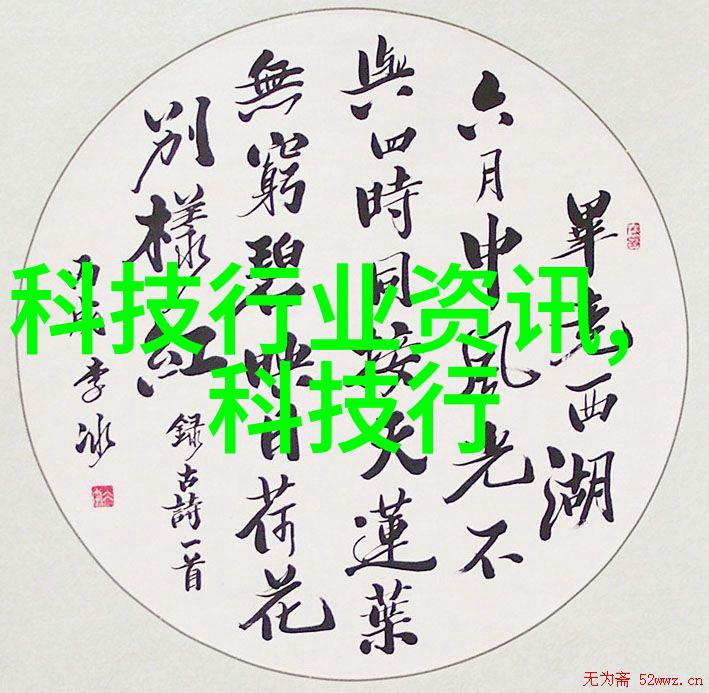 畢竟西湖
六月中風光不
與四時同接天蓮葉
無窮碧映日荷花
別樣紅
錄古詩一首
丙戌李冰
科技行业资讯,
科技行
无为斋 52wwz.cn